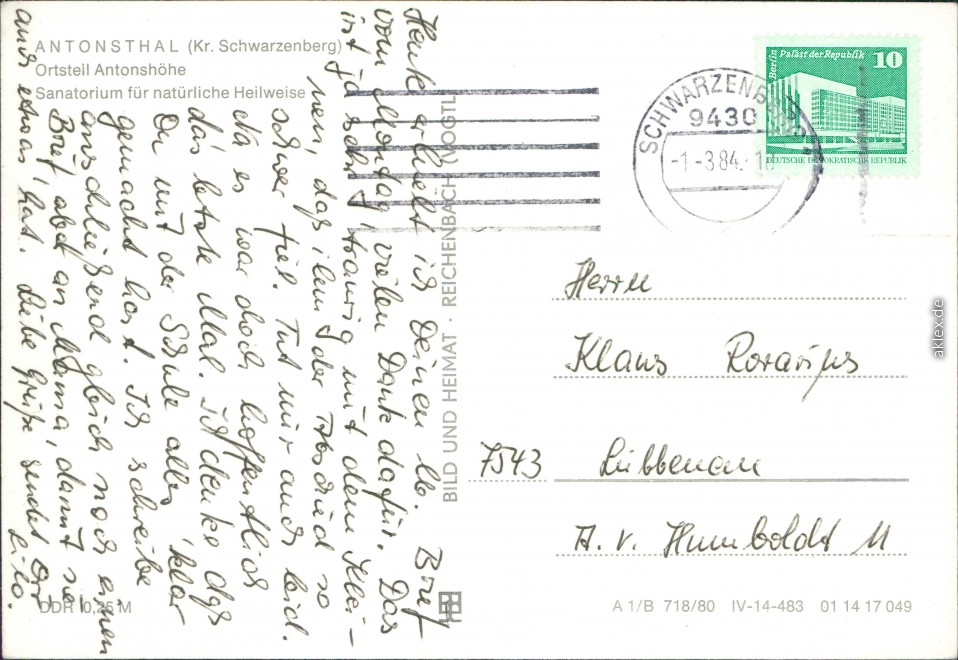 ANTONSTHAL (Kr. Schwarzenberg)
Ortsteil Antonshöhe
Sanatorium für natürliche Heilweise
Heute erhielt ich Deinen lb. Brief
vom Montag, vielen Dank dafür. Das
ist ja sehr traurig mit dem Klei-
nen, daß ihm der Abschied so
schwer fiel. Tut mir auch leid.
Na es war doch hoffentlich
das letzte Mal. Ich denke daß
Du mit der Schule alles klar
gemacht hast. Ich schreibe
anschließend gleich noch einen
Brief, aber an Mama, damit sie
auch etwas hat. Liebe Grüße sendet Dir
Lilo.
DDR 0,25 M
BILD UND HEIMAT · REICHENBACH (VOGTL
SCHWARZENBERG
9430
-1.-3.84.-1
Berlin Palast der Republik
10
DEUTSCHE DEMOKRATISCHE REPUBLIK
Herrn
Klaus
7543 Lübbenau
A. v. Humboldt 11
A 1/B 718/80 IV-14-483 01 14 17 049
aklex.de